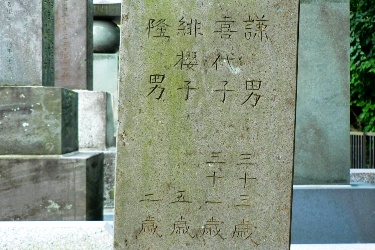 謙男 三十三歳
喜代子 三十一歳
緋櫻子 五歳
隆男 二歳